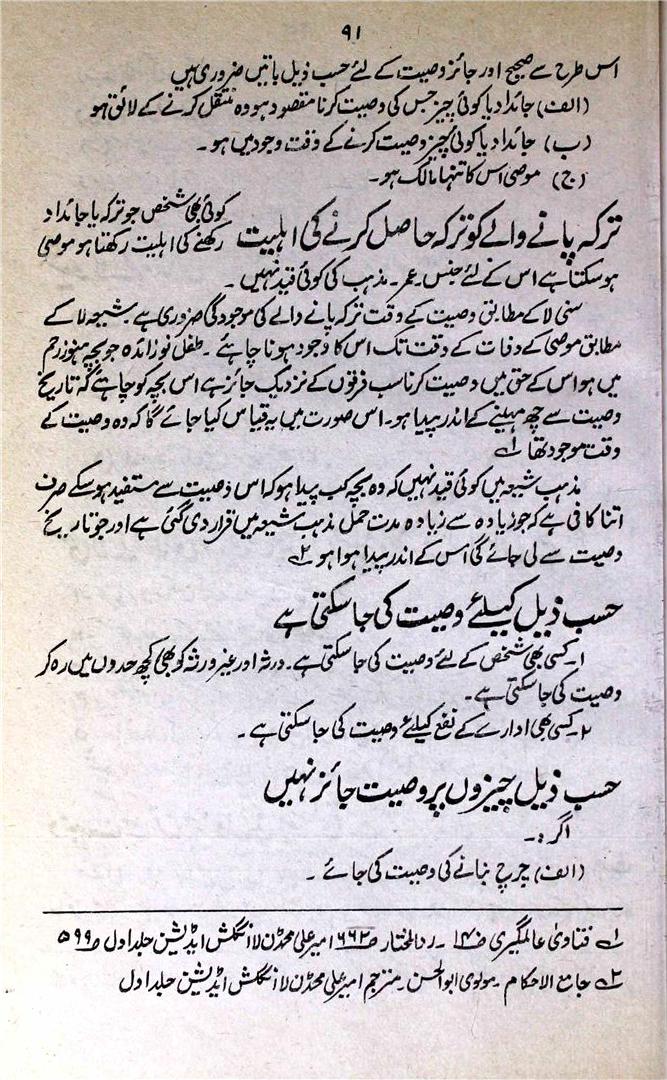 ۹۱
اس طرح سے صحیح اور جائز وصیت کے لئے حسب ذیل باتیں ضروری ہیں
(الف) جائداد یا کوئی چیز جس کی وصیت کرنا مقصود ہو وہ منتقل کرنے کے لائق ہو
(ب) جائداد یا کوئی چیز وصیت کرنے کے وقت وجود میں ہو۔
(ج) موصی اس کا تنہا مالک ہو۔
ترکہ پانے والے کو ترکہ حاصل کرنے کی اہلیت
کوئی بھی شخص جو ترکہ یا جائداد
رکھنے کی اہلیت رکھتا ہو موصی
ہو سکتا ہے اس کے لئے جنس۔ عمر۔ مذہب کی کوئی قید نہیں۔
سنی لا کے مطابق وصیت کے وقت ترکہ پانے والے کی موجودگی ضروری ہے۔ شیعہ لا کے
مطابق موصی کے وفات کے وقت تک اس کا وجود ہونا چاہئے۔ طفل نوزائدہ جو بچہ ہنوز رحم
میں ہو اس کے حق میں وصیت کرنا سب فرقوں کے نزدیک جائز ہے اس بچہ کو چاہے گہ تاریخ
وصیت سے چھ مہینے کے اندر پیدا ہو۔ اس صورت میں یہ قیاس کیا جائے گا کہ وہ وصیت کے
وقت موجود تھا ۱؎
مذہب شیعہ میں کوئی قید نہیں کہ وہ بچہ کب پیدا ہو کہ اس وصیت سے مستفید ہو سکے صرف
اتنا کافی ہے کہ جو زیادہ سے زیادہ مدت حمل مذہب شیعہ میں قرار دی گئی ہے اور جو تاریخ
وصیت سے لی جائے گی اس کے اندر پیدا ہوا ہو ۲؎
حسب ذیل کیلئے وصیت کی جا سکتی ہے
۱۔ کسی بھی شخص کے لئے وصیت کی جا سکتی ہے۔ ورثہ اور غیر ورثہ کو بھی کچھ حدوں میں رہ کر
وصیت کی جا سکتی ہے۔
۲۔ کسی بھی ادارے کے نفع کیلئے وصیت کی جا سکتی ہے۔
حسب ذیل چیزوں پر وصیت جائز نہیں
اگر :۔
(الف) چرچ بنانے کی وصیت کی جائے۔
۱؎ فتاویٰ عالمگیری ص۱۴۔ رد المختار ص۶۶۲ امیر علی محمڈن لا انگلش ایڈیشن جلد اول ص ۵۹۹
۲؎ جامع الاحکام۔ مولوی ابوالحسن۔ مترجم امیر علی محمڈن لا انگلش ایڈیشن جلد اول